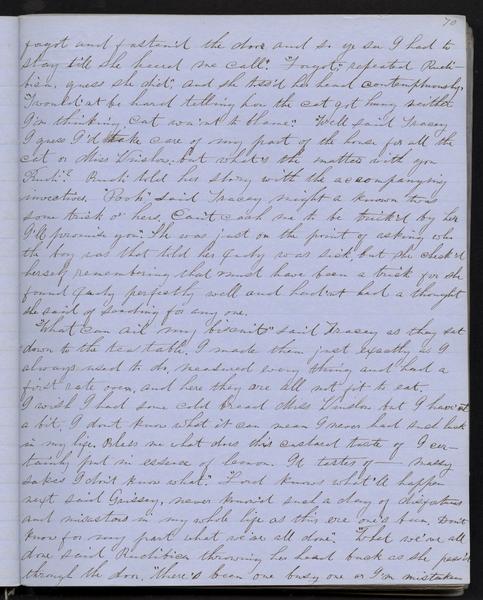 70
forgot and fasten'd the door and so ye see I had to
stay till she heered me call". "Forgot", repeated Rush-
bien, guess she did", and she toss'd her head contemptuously,
"T'would'nt be hard telling how the cat got hung neither
I'm thinking cat won'nt to blame". "Well said Tracey
I guess I'd take care of my part of the house for all the
cat or Miss Winslow, but what's the matter with you
told her story with the accompanying
invectives. "Pooh" said Tracey might a known twas
some trick o' hers. Can't cash me to be trick'd by her
I'll promise you". She was just on the point of asking who
the boy was that told her was sick, but she check'd
herself remembering that must have been a trick for she
found perfectly well and had'nt had a thought
she said of sending for any one.
"What can ail my biscuits" said Tracey as they sat
down to the tea table. I made them just exactly as I
always used to do, measured every thing and had a
first rate oven, and here they are all not fit to eat.
I wish I had some cold bread Miss Winslow but I have'nt
a bit, I don't know what it can mean I never had such luck
in my life. Bless me what does this custard taste of I cer-
tainly put in essence of lemon. It tastes of — massy
sakes I don't know what". "Lord knows what'll happen
next said never know'd such a day of
and in my whole life as this ere one's been. Don't
know for my part what we've all done". "What we've all
done said throwing her head back as she pass'd
through the door, "there's been one busy one or I'm mistaken